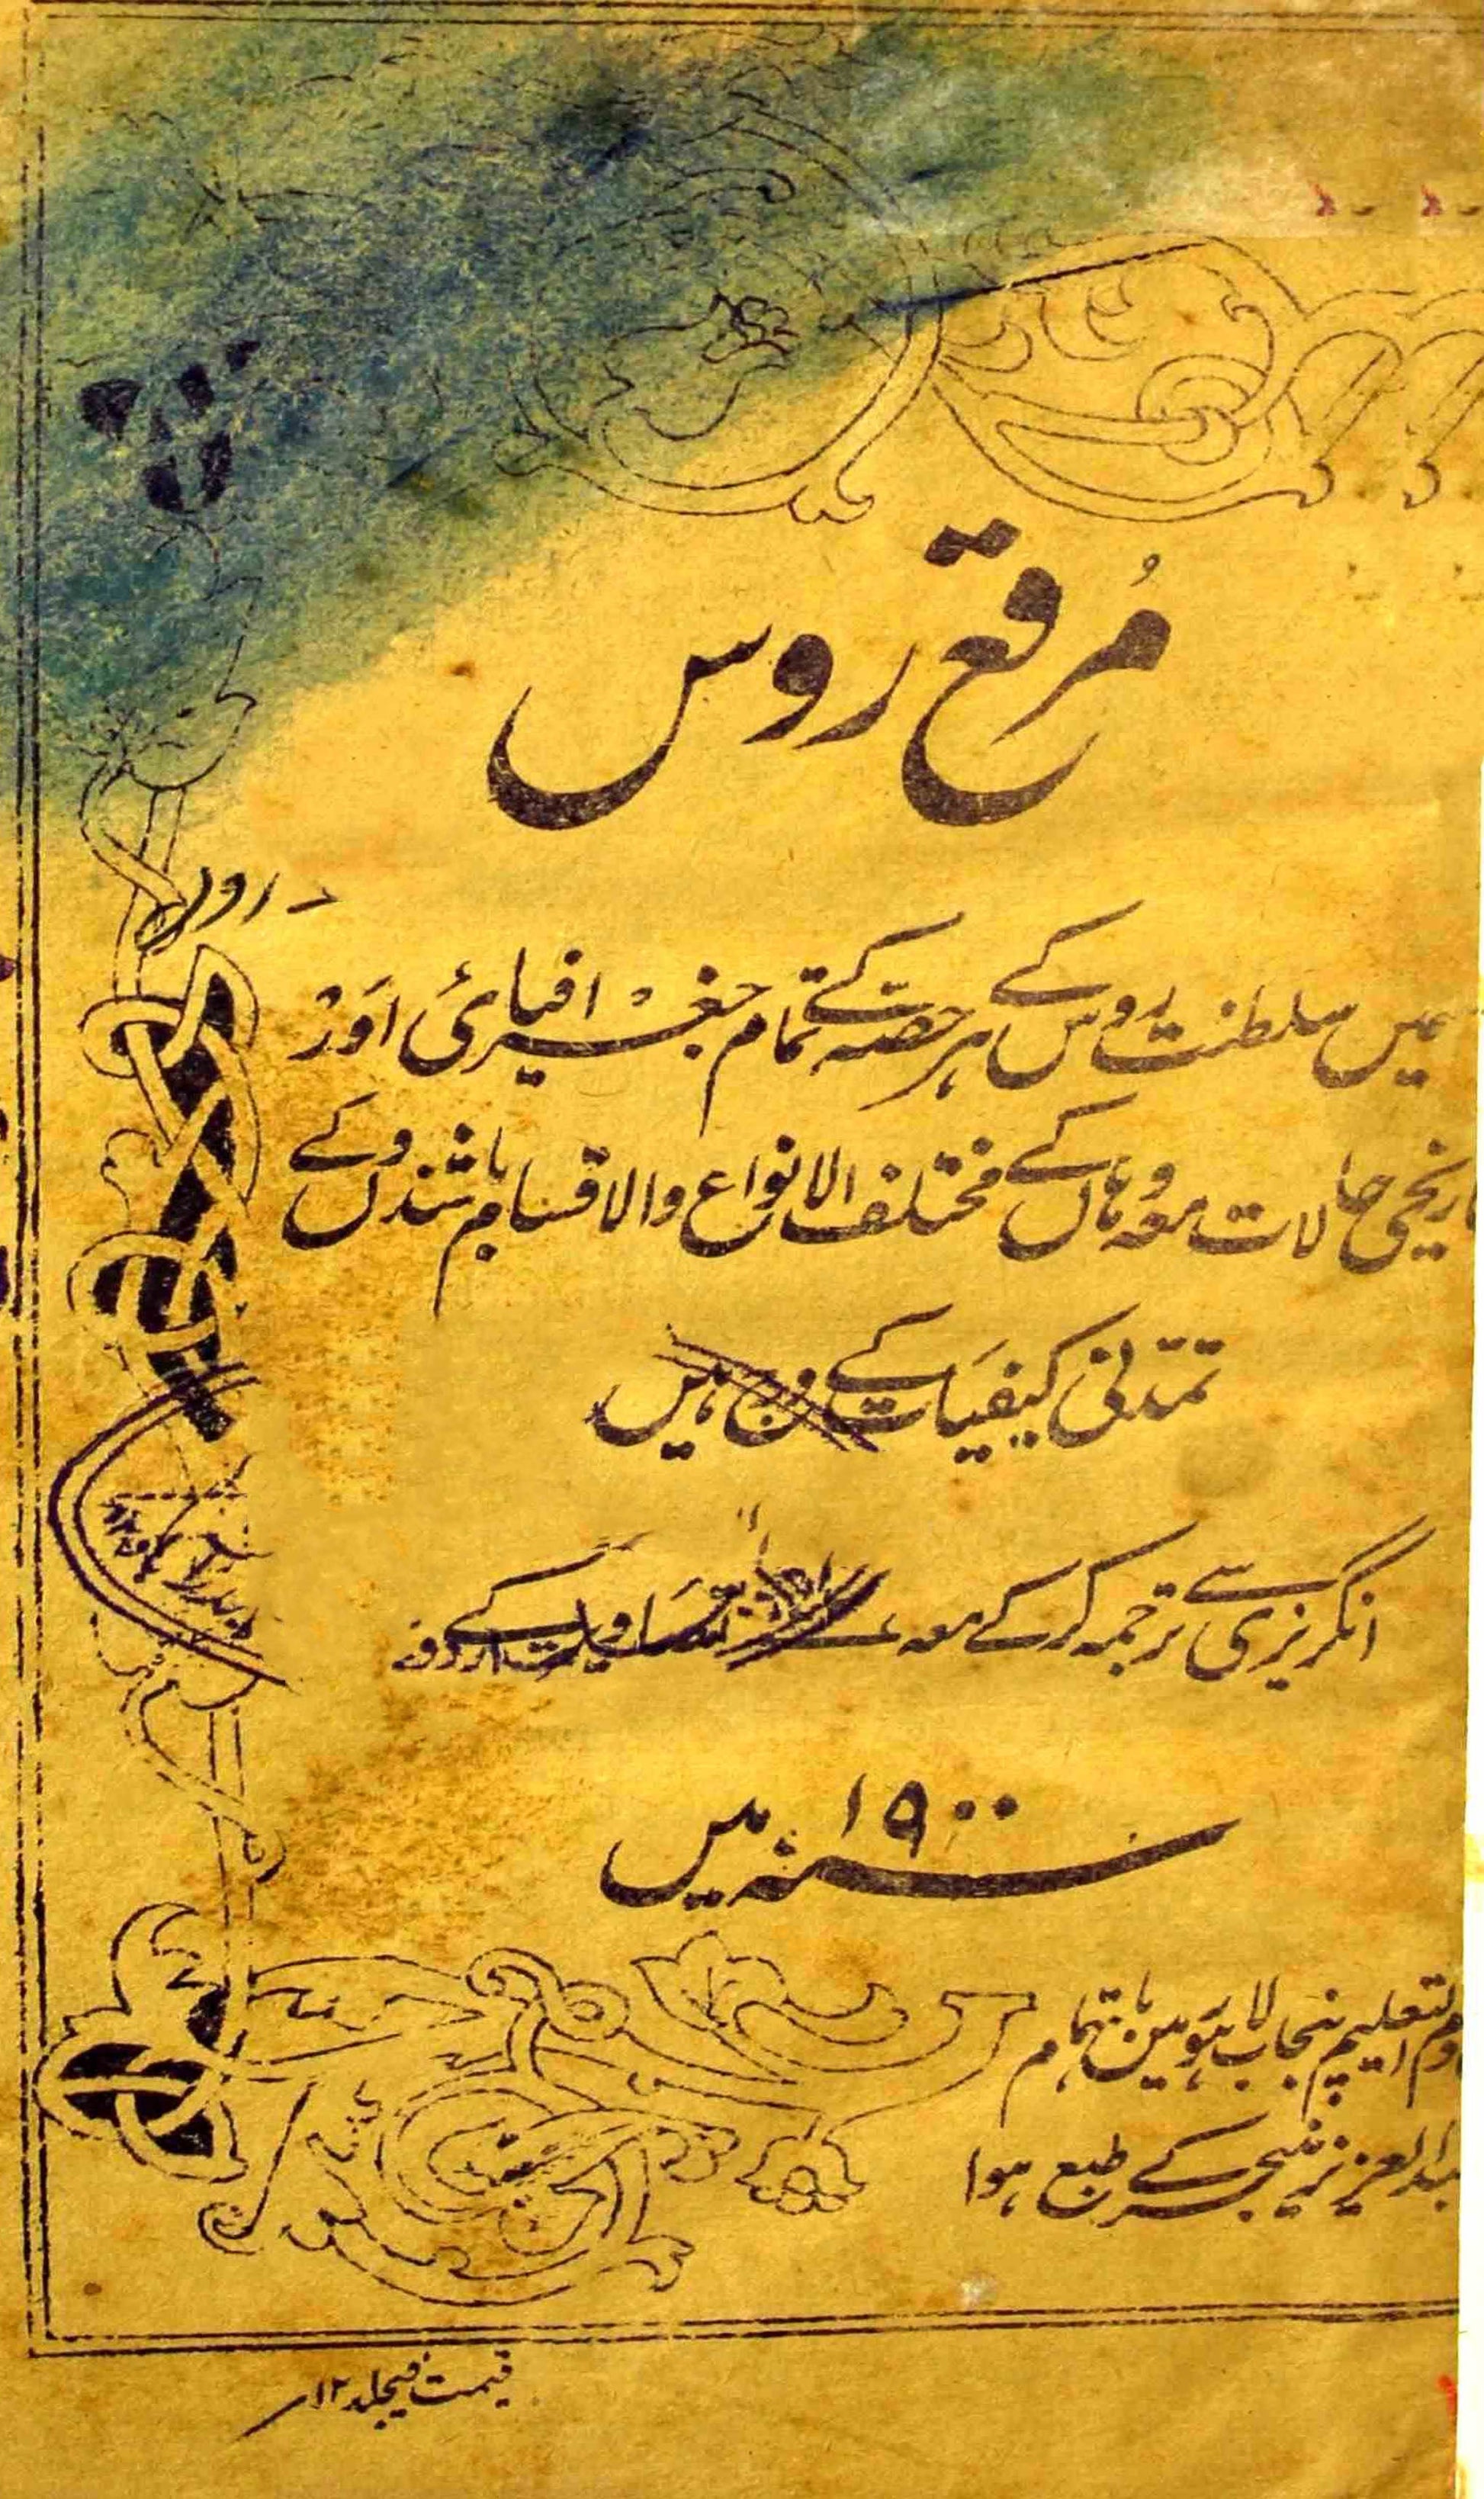 مُرقع روس
میں سلطنت روس کے ہر حصہ کے تمام جغرافیائی اور
تاریخی حالات معہ وہاں کے مختلف الانواع والاقسام باشندوں کے
تمدنی کیفیات کے درج ہیں
انگریزی سے ترجمہ کر کے معہ تصاویر کے
سنہ ۱۹۰۰ میں
خادم التعلیم پنجاب لاہور میں باہتمام
عبدالعزیز منیجر کے طبع ہوا
قیمت فیجلد ۱۲؍